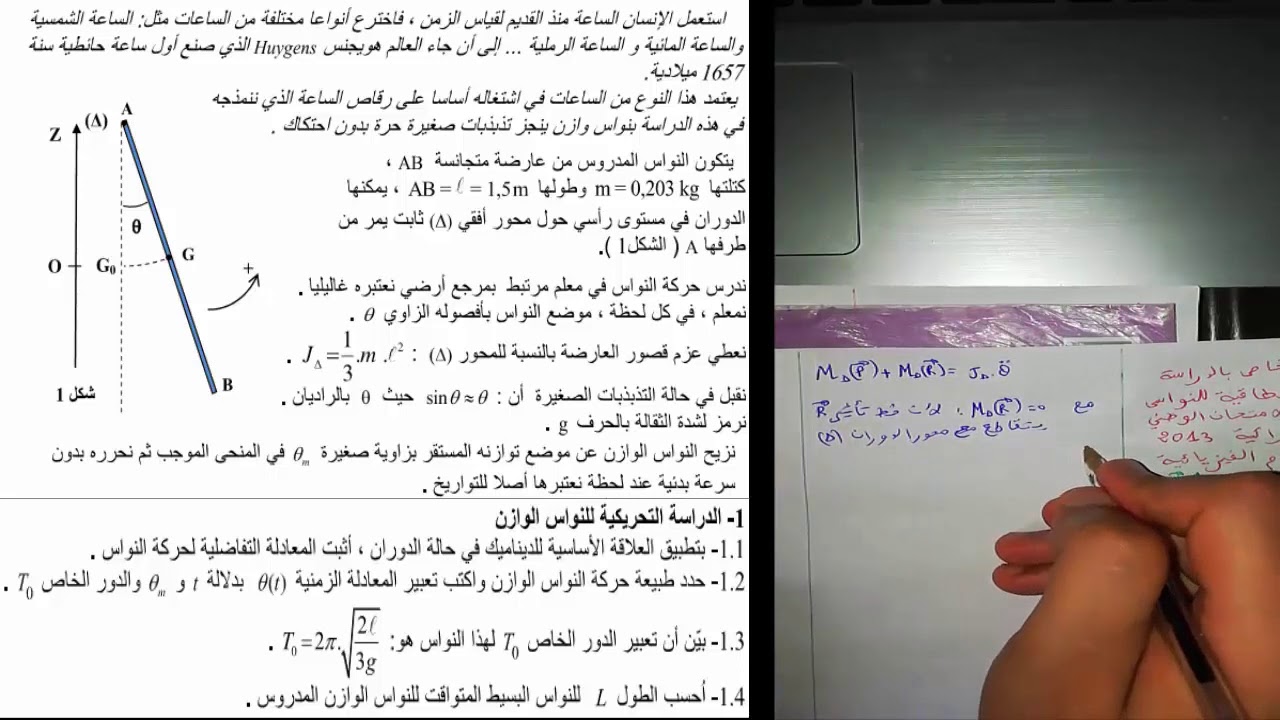 استعمل الإنسان الساعة منذ القديم لقياس الزمن ، فاخترع أنواعا مختلفة من الساعات مثل: الساعة الشمسية
والساعة المائية و الساعة الرملية ... إلى أن جاء العالم هويجنس Huygens الذي صنع أول ساعة حائطية سنة
1657 ميلادية.
يعتمد هذا النوع من الساعات في اشتغاله أساسا على رقاص الساعة الذي ننمذجه
في هذه الدراسة بنواس وازن ينجز تذبذبات صغيرة حرة بدون احتكاك .
يتكون النواس المدروس من عارضة متجانسة AB ،
كتلتها m = 0,203 kg وطولها AB = ℓ = 1,5 m ، يمكنها
الدوران في مستوى رأسي حول محور أفقي (Δ) ثابت يمر من
طرفها A ( الشكل1 ).
ندرس حركة النواس في معلم مرتبط بمرجع أرضي نعتبره غاليليا .
نمعلم ، في كل لحظة ، موضع النواس بأفصوله الزاوي θ .
نعطي عزم قصور العارضة بالنسبة للمحور (Δ) : J_Δ = 1/3 .m .ℓ² .
نقبل في حالة التذبذبات الصغيرة أن : sin θ ≈ θ حيث θ بالراديان .
نرمز لشدة الثقالة بالحرف g .
نزيح النواس الوازن عن موضع توازنه المستقر بزاوية صغيرة θ_m في المنحى الموجب ثم نحرره بدون
سرعة بدئية عند لحظة نعتبرها أصلا للتواريخ .
Z
(Δ)
A
θ
O
G₀
G
+
B
شكل 1
1- الدراسة التحريكية للنواس الوازن
1.1- بتطبيق العلاقة الأساسية للديناميك في حالة الدوران ، أثبت المعادلة التفاضلية لحركة النواس .
1.2- حدد طبيعة حركة النواس الوازن واكتب تعبير المعادلة الزمنية θ(t) بدلالة t و θ_m والدور الخاص T₀ .
1.3- بيّن أن تعبير الدور الخاص T₀ لهذا النواس هو: T₀ = 2π.√(2ℓ/3g) .
1.4- أحسب الطول L للنواس البسيط المتواقت للنواس الوازن المدروس .
M_Δ(P⃗) + M_Δ(R⃗) = J_Δ . θ̈
مع M_Δ(R⃗) = 0 ؛ لأن خط تأثير R⃗
يتقاطع مع محور الدوران (Δ)
خاص بالدراسة
للنواس
الوطني
2013
الفيزيائية